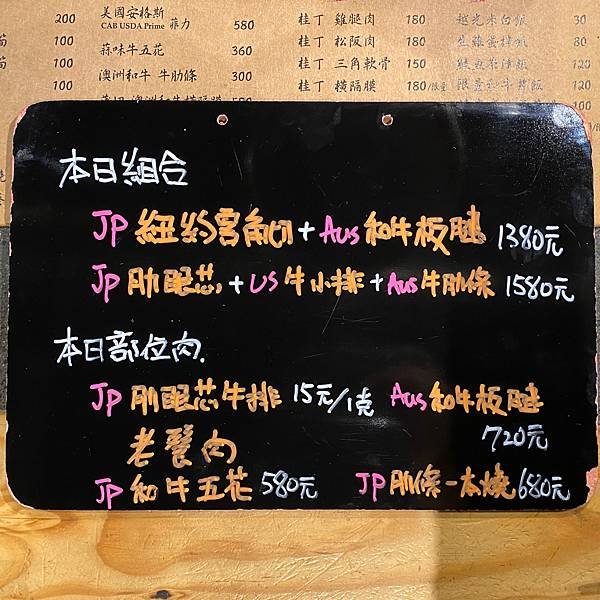 200
100
100
美國安格斯
CAB USDA Prime 菲力 580
蒜味牛五花 360
澳洲和牛 牛肋條 300
580
桂丁 雞腿肉 180
桂丁 松阪肉 180
桂丁 三角軟骨 150
桂丁 橫隔膜 180/限量
30
80
120
120
本日組合
JP 紐約客角切 + Aus 和牛板腱 1380元
JP 肋眼芯 + US 牛小排 + Aus 牛肋條 1580元
本日部位肉.
JP 肋眼芯牛排 15元/1克 Aus 和牛板腱
老饕肉 720元
JP 和牛五花 580元 JP 肋條一本燒 680元